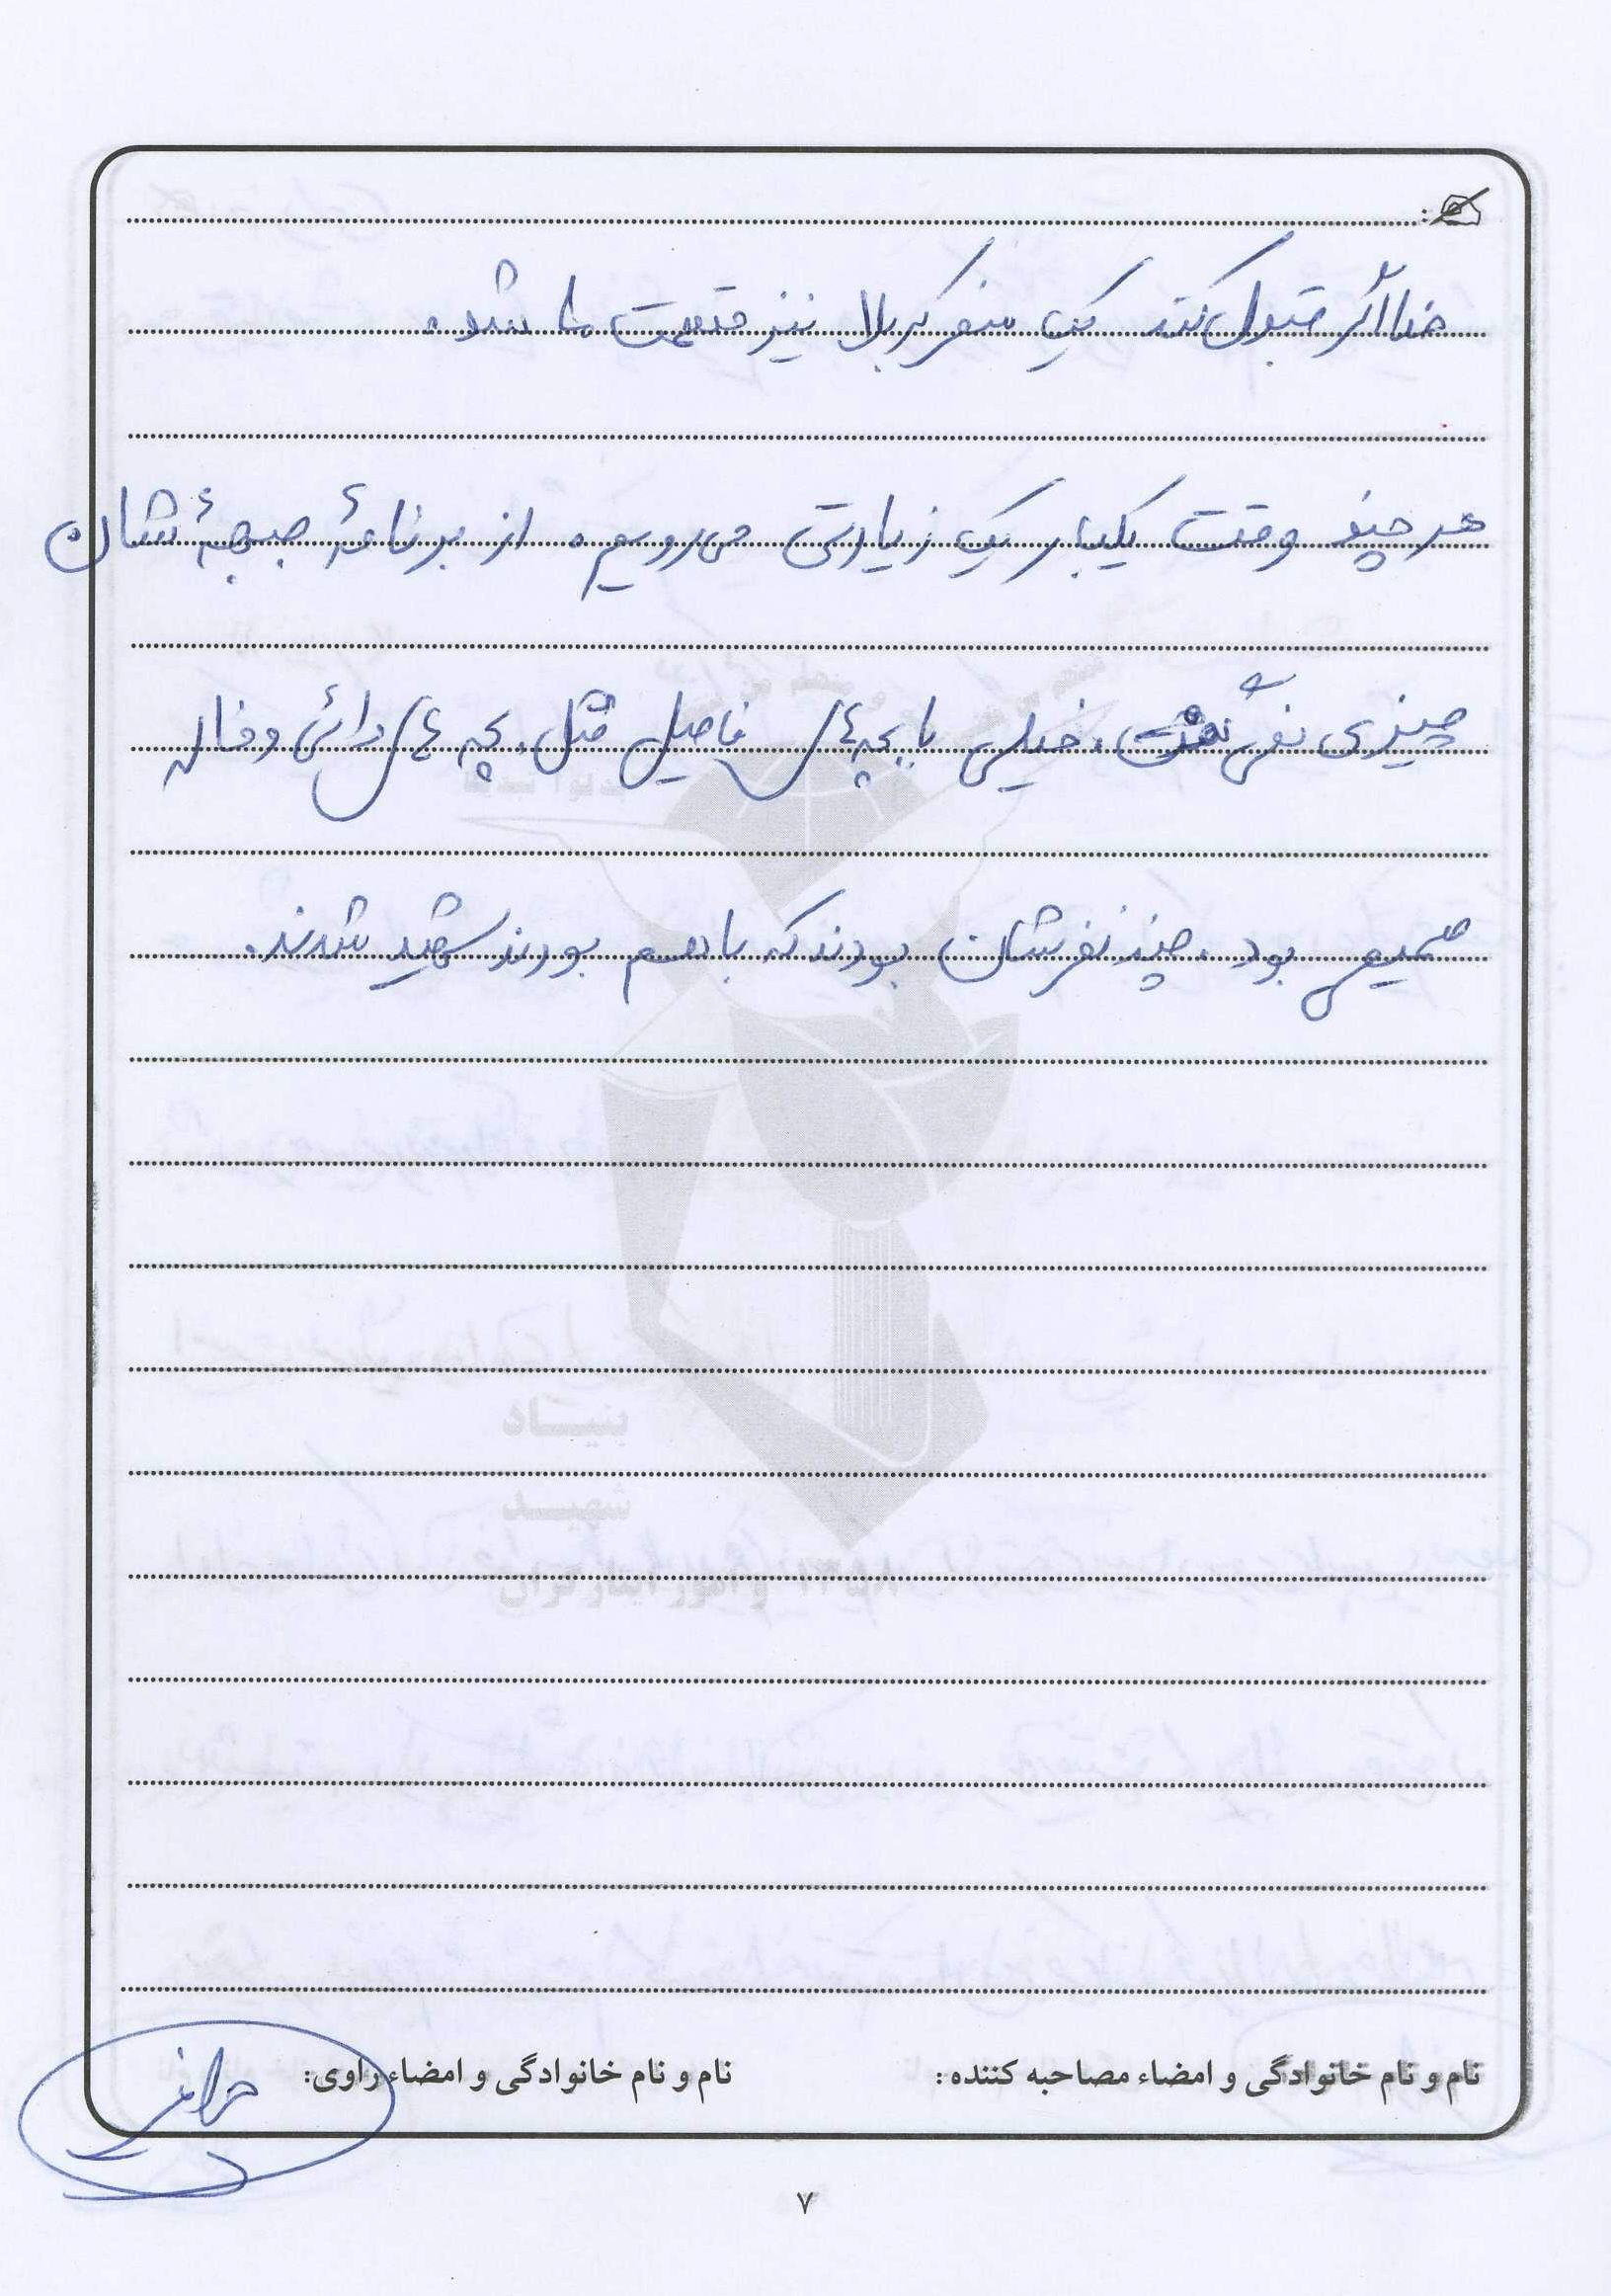 خدا اگر قبول کند یک سفر کربلا نیز قسمت ما شود.
هر چند وقت یکبار یک زیارتی می‌رویم. از برنامۀ جبهۀ شان
چیزی نمی‌گفت. خیلی با بچه‌های فامیل مثل، بچه‌های دائی و خاله
صمیمی بود. چند نفرشان بودند که با هم بودند شهید شدند.
بنیاد
شهید
و امور ایثارگران ۱۳۵۸
نام و نام خانوادگی و امضاء مصاحبه کننده : نام و نام خانوادگی و امضاء راوی:
۷